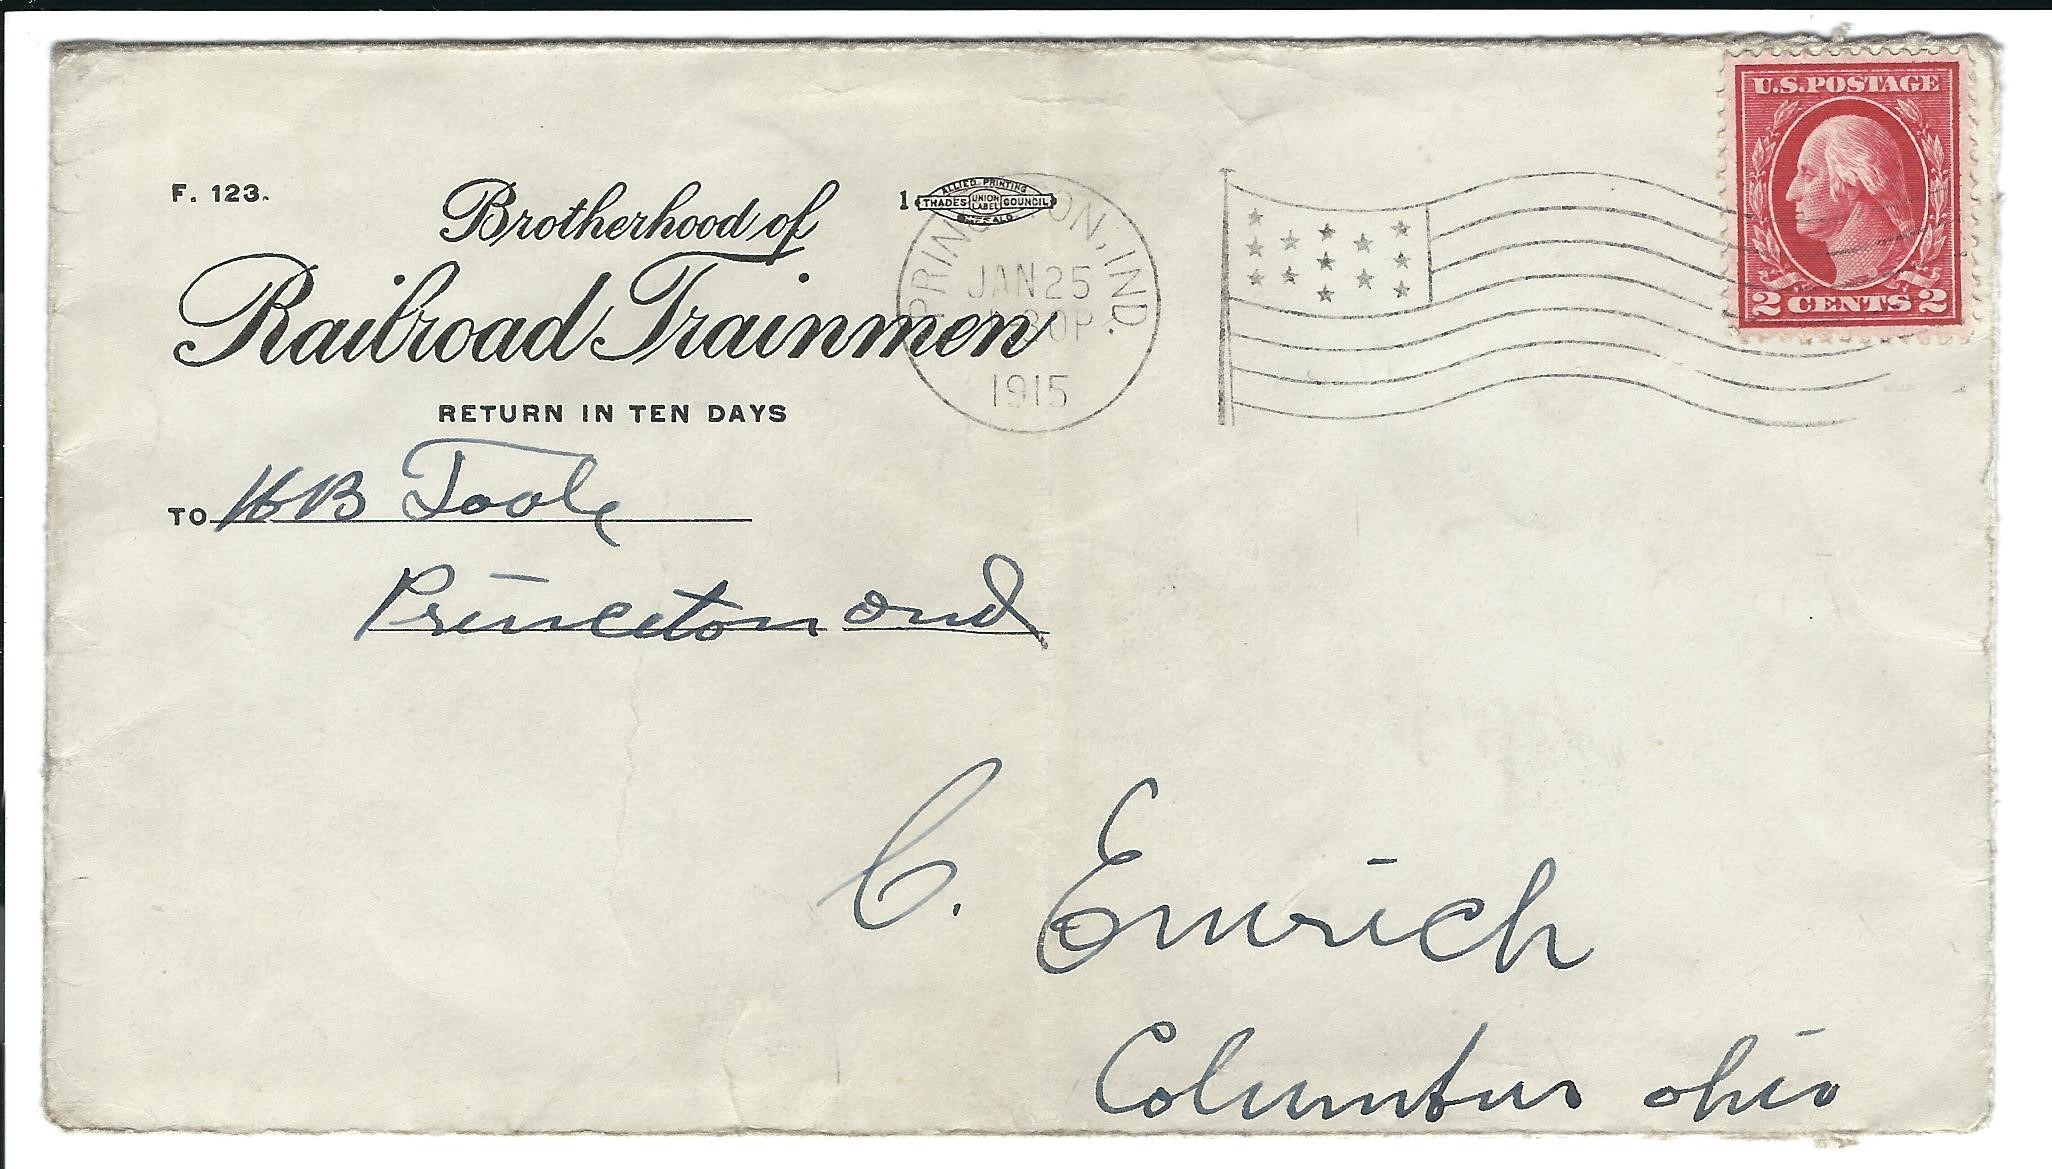 F. 123.
Brotherhood of
Railroad Trainmen
RETURN IN TEN DAYS
TO HB Toole
Princeton Ind
1
ALLIED PRINTING
TRADES UNION LABEL COUNCIL
BUFFALO
PRINCETON, IND.
JAN 25
30P
1915
U.S. POSTAGE
2 CENTS 2
C. Emrich
Columbus ohio